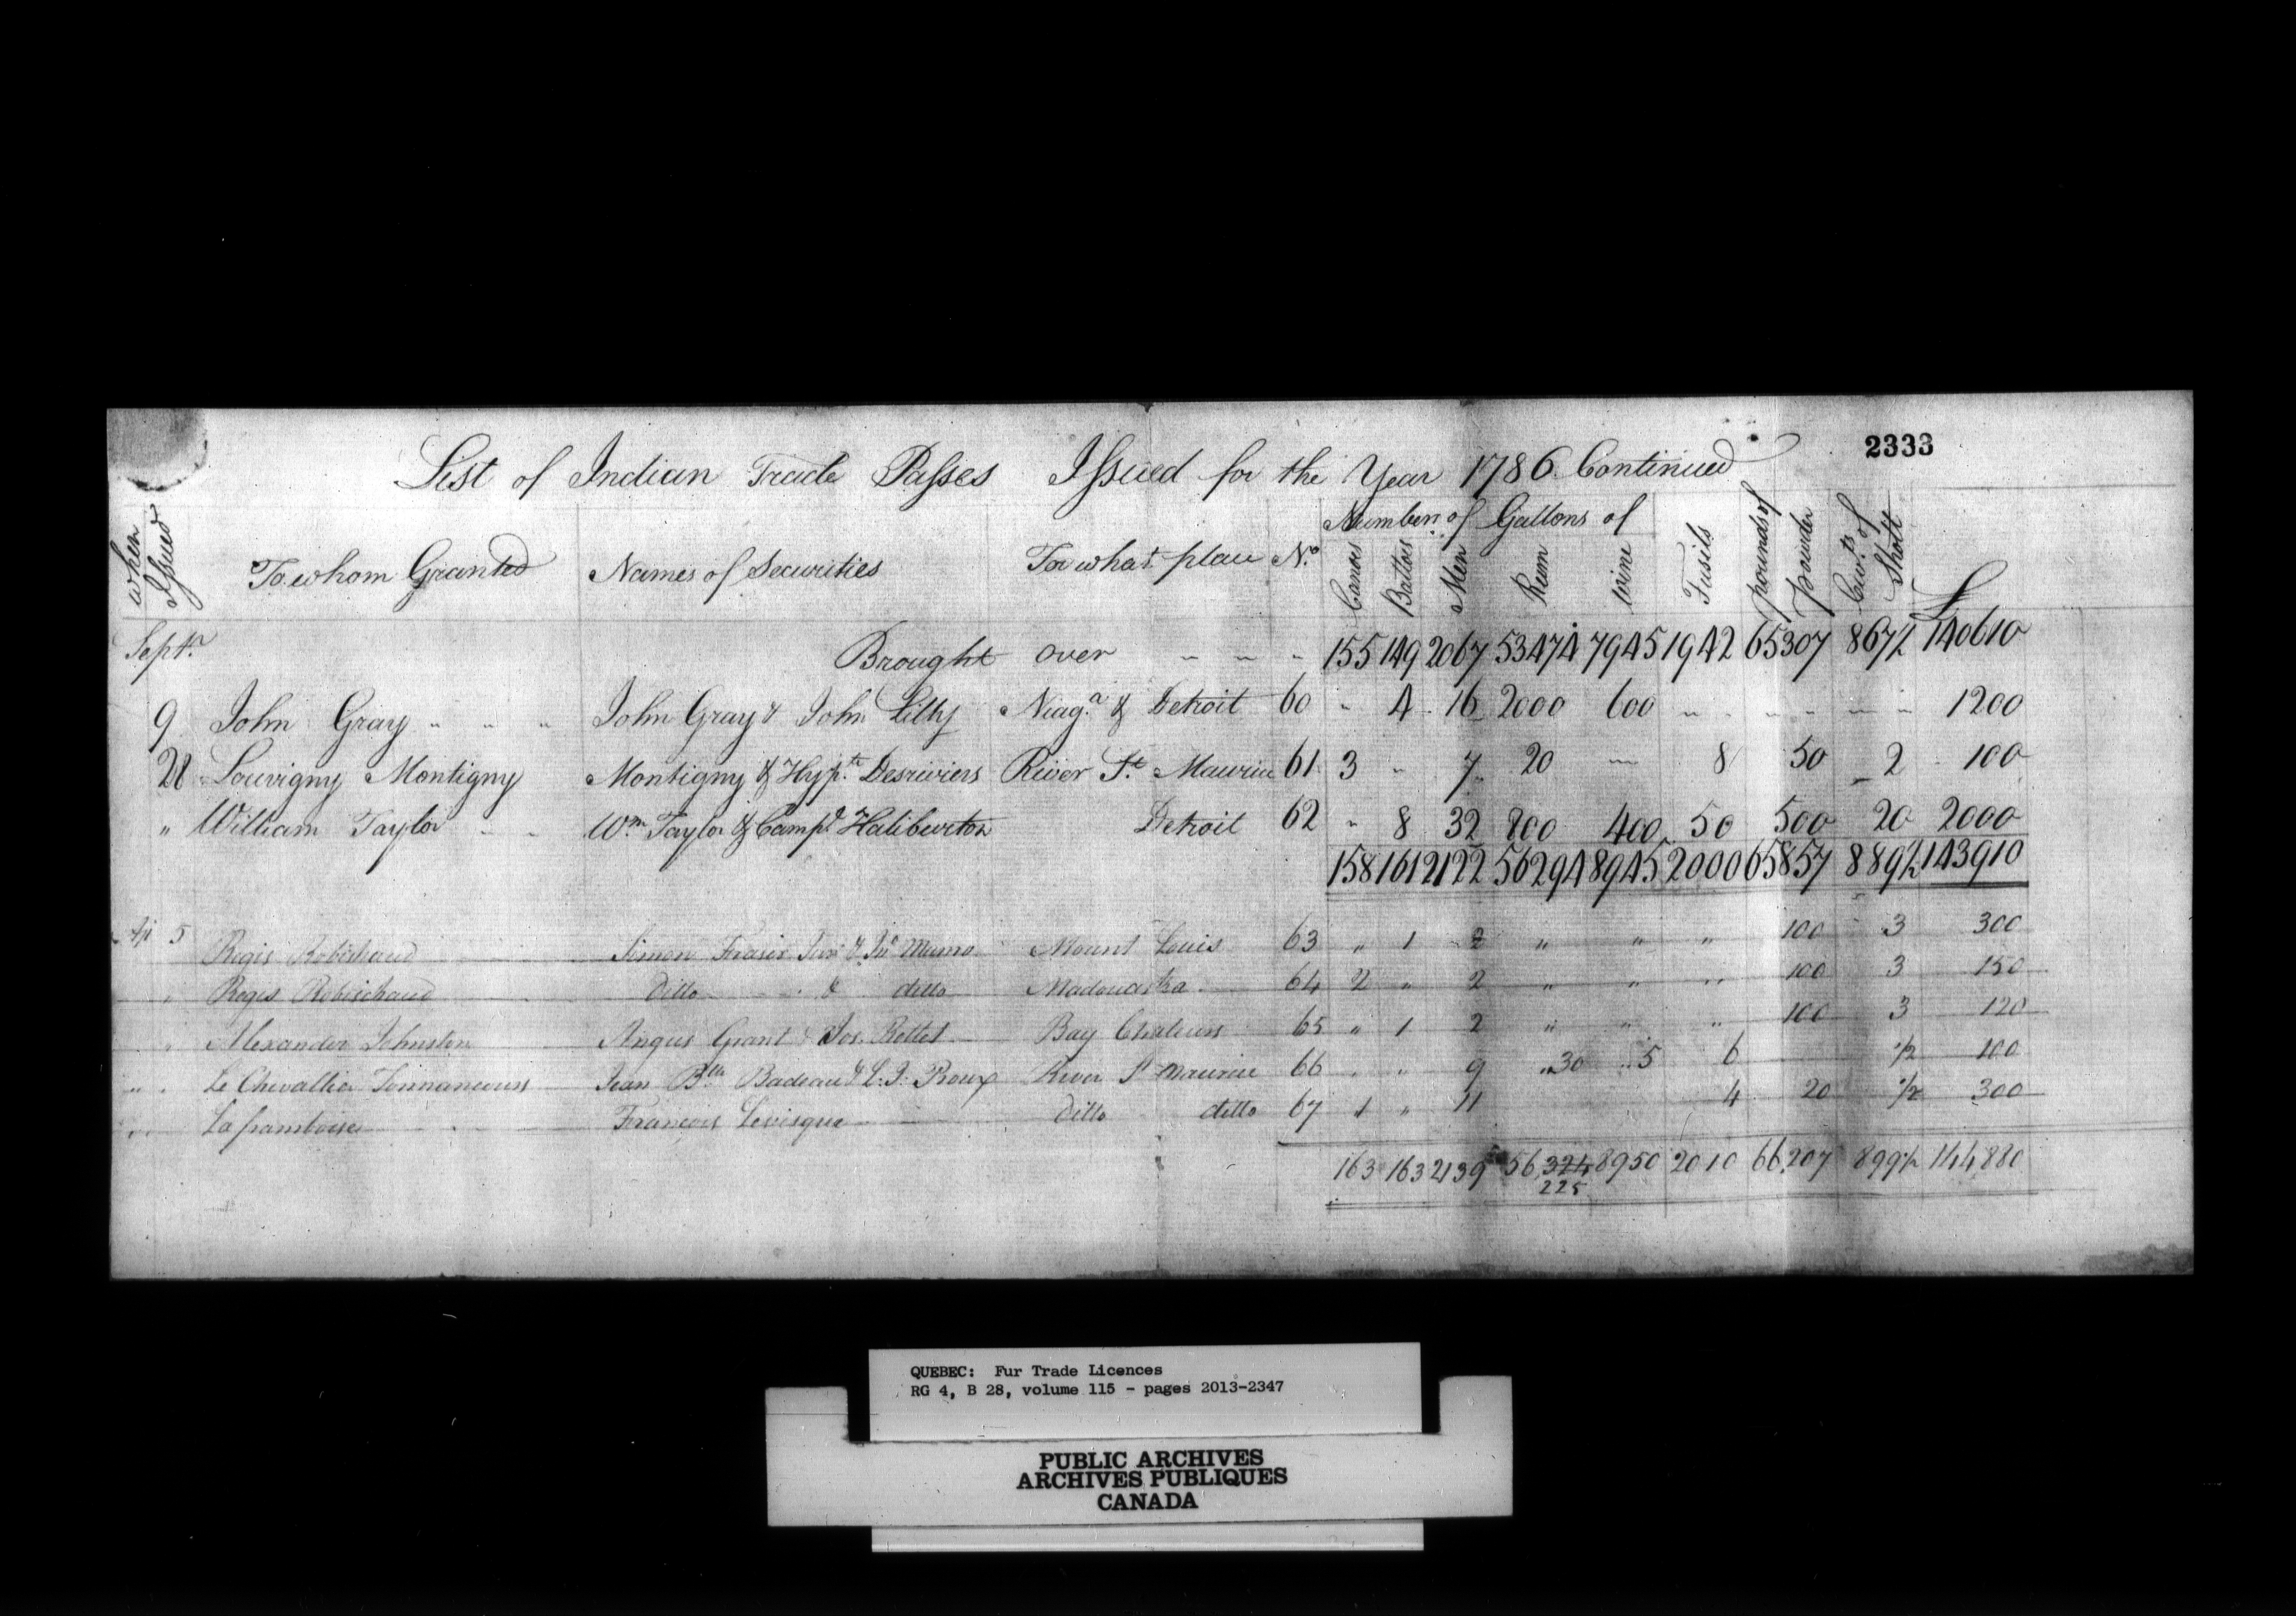 2333
List of Indian Trade Passes Issued for the Year 1786 Continued
Number of Gallons of
when Issued To whom Granted Names of Securities For what place No. Canoes Battoes Men Rum wine Fusils pounds of powder Cwts. of Shott £
Septr. Brought over " " " 155 149 2067 53474 7945 1942 65307 867½ 140610
9 John Gray " " " John Gray & John Lilly Niaga. & Detroit 60 " 4 16 2000 600 " " " " " " 1200
28 Louvigny Montigny Montigny & Hypte. Desrivieres River St. Maurice 61 3 " 7 20 " 8 50 2 100
" William Taylor " " Wm. Taylor & Campl. Haliburton Detroit 62 " 8 32 800 400 50 500 20 2000
158 161 2122 56294 8945 2000 65857 889½ 143910
5 Regis Robichaud Simon Fraser Junr. & Jno. Munro Mount Louis 63 " 1 2 " " " 100 3 300
" Regis Robischaud Ditto & ditto Madouaska 64 2 " 2 " " " 100 3 150
" Alexander Johnston Angus Grant & Jos. Rottot Bay Chaleurs 65 " 1 2 " " " 100 3 120
" " Le Chevallier Tonnancour Jean Bte. Badeau & L. J. Roux River St Maurice 66 " " 9 30 5 6 ½ 100
" " Laframboise François Levisque ditto ditto 67 1 " 11 4 20 ½ 300
163 163 2139 56,324 8950 2010 66,207 899½ 144,880
225
QUEBEC: Fur Trade Licences
RG 4, B 28, volume 115 - pages 2013-2347
PUBLIC ARCHIVES
ARCHIVES PUBLIQUES
CANADA